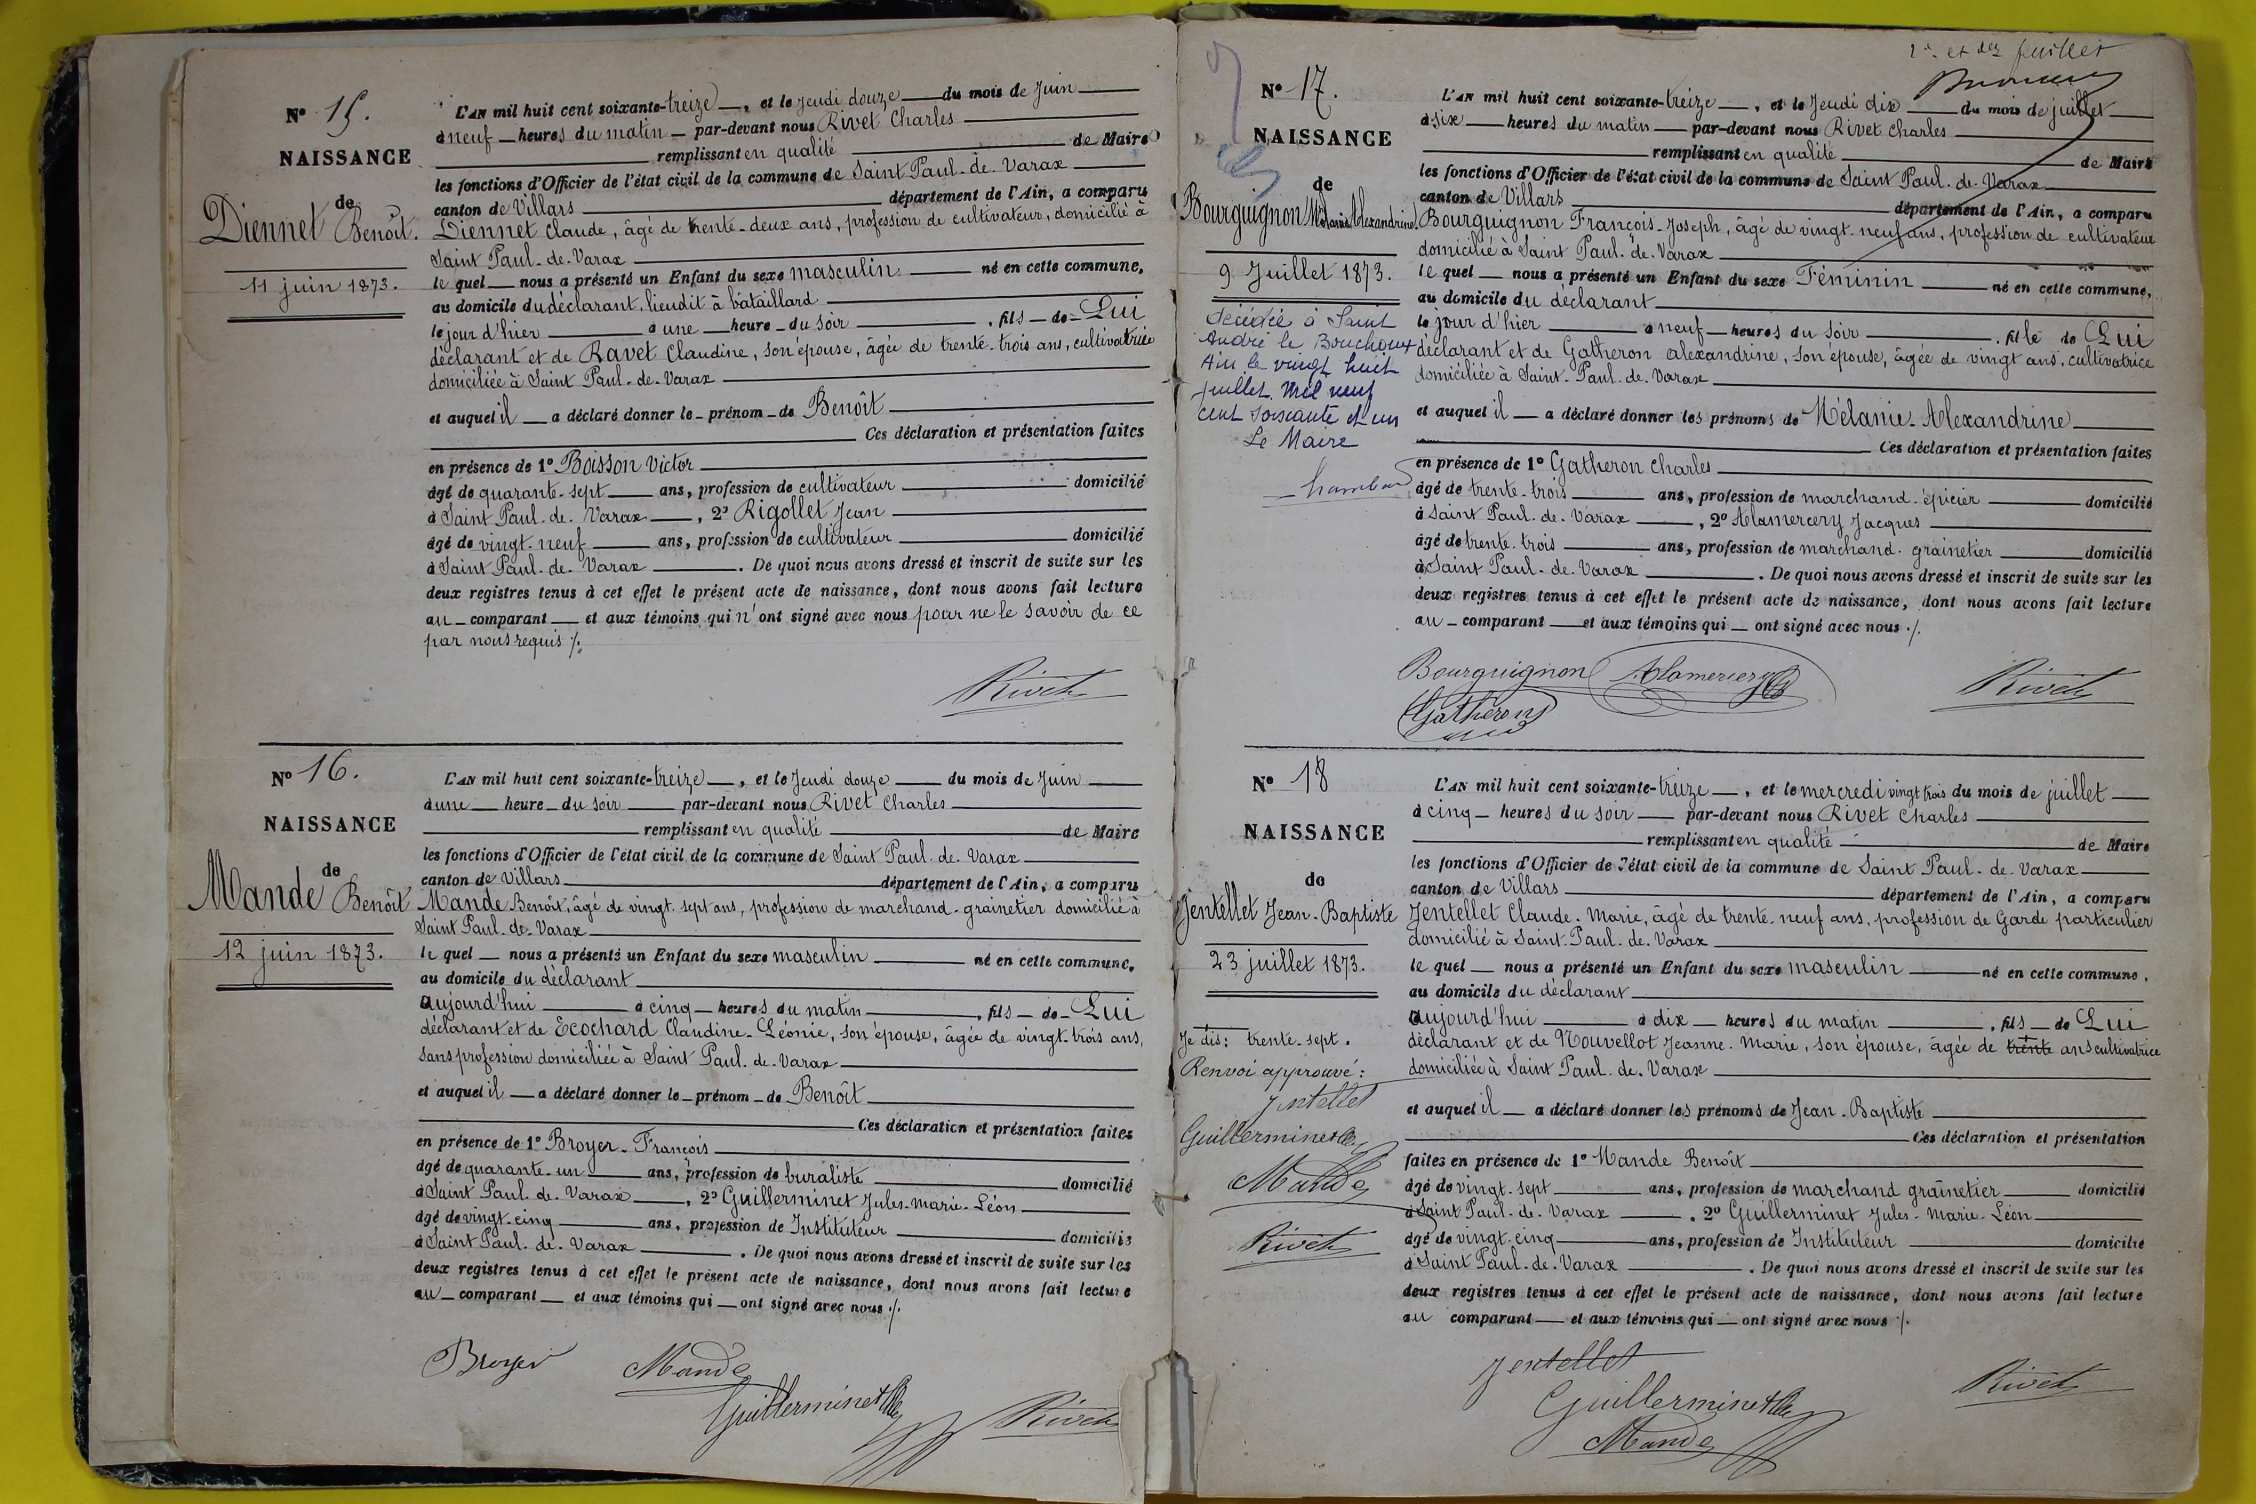 N° 15.
NAISSANCE
de
Diennet Benoît.
11 juin 1873.
L'AN mil huit cent soixante-treize, et le Jeudi douze du mois de Juin
à neuf heures du matin par-devant nous Rivet Charles
remplissant en qualité de Maire
les fonctions d'Officier de l'état civil de la commune de Saint Paul-de-Varax
canton de Villars département de l'Ain, a comparu
Diennet Claude, âgé de trente-deux ans, profession de cultivateur, domicilié à
Saint Paul-de-Varax
le quel nous a présenté un Enfant du sexe masculin né en cette commune,
au domicile du déclarant, lieudit à bataillard
le jour d'hier à une heure du soir, fils de Lui
déclarant et de Ravet Claudine, son épouse, âgée de trente-trois ans, cultivatrice
domiciliée à Saint Paul-de-Varax
et auquel il a déclaré donner le prénom de Benoît
Ces déclaration et présentation faites
en présence de 1° Boisson Victor
âgé de quarante-sept ans, profession de cultivateur domicilié
à Saint Paul-de-Varax, 2° Rigollet Jean
âgé de vingt-neuf ans, profession de cultivateur domicilié
à Saint Paul-de-Varax. De quoi nous avons dressé et inscrit de suite sur les
deux registres tenus à cet effet le présent acte de naissance, dont nous avons fait lecture
au comparant et aux témoins qui n'ont signé avec nous pour ne le savoir de ce
par nous requis ./.
Rivet
N° 16.
NAISSANCE
de
Mande Benoît
12 juin 1873.
L'AN mil huit cent soixante-treize, et le Jeudi douze du mois de Juin
à une heure du soir par-devant nous Rivet Charles
remplissant en qualité de Maire
les fonctions d'Officier de l'état civil de la commune de Saint Paul-de-Varax
canton de Villars département de l'Ain, a comparu
Mande Benoît, âgé de vingt-sept ans, profession de marchand-grainetier domicilié à
Saint Paul-de-Varax
le quel nous a présenté un Enfant du sexe masculin né en cette commune,
au domicile du déclarant
aujourd'hui à cinq heures du matin, fils de Lui
déclarant et de Ecochard Claudine-Léonie, son épouse, âgée de vingt-trois ans,
sans profession domiciliée à Saint Paul-de-Varax
et auquel il a déclaré donner le prénom de Benoît
Ces déclaration et présentation faites
en présence de 1° Broyer-François
âgé de quarante-un ans, profession de buraliste domicilié
à Saint Paul-de-Varax, 2° Guillerminet Jules-Marie-Léon
âgé de vingt-cinq ans, profession de Instituteur domicilié
à Saint Paul-de-Varax. De quoi nous avons dressé et inscrit de suite sur les
deux registres tenus à cet effet le présent acte de naissance, dont nous avons fait lecture
au comparant et aux témoins qui ont signé avec nous ./.
Broyer Mande
Guillerminet Rivet
juillet
N° 17.
NAISSANCE
de
Bourguignon Mélanie Alexandrine
9 Juillet 1873.
Décédée à Saint
André le Bouchoux
Ain le vingt huit
juillet mil neuf
cent soixante et un
Le Maire
L'AN mil huit cent soixante-treize, et le Jeudi dix du mois de juillet
à six heures du matin par-devant nous Rivet Charles
remplissant en qualité de Maire
les fonctions d'Officier de l'état civil de la commune de Saint Paul-de-Varax
canton de Villars département de l'Ain, a comparu
Bourguignon François-Joseph, âgé de vingt-neuf ans, profession de cultivateur
domicilié à Saint Paul-de-Varax
le quel nous a présenté un Enfant du sexe Féminin né en cette commune,
au domicile du déclarant
le jour d'hier à neuf heures du soir, fille de Lui
déclarant et de Gatheron Alexandrine, son épouse, âgée de vingt ans, cultivatrice
domiciliée à Saint-Paul-de-Varax
et auquel il a déclaré donner les prénoms de Mélanie-Alexandrine
Ces déclaration et présentation faites
en présence de 1° Gatheron Charles
âgé de trente-trois ans, profession de marchand-épicier domicilié
à Saint Paul-de-Varax, 2° Alamercery Jacques
âgé de trente-trois ans, profession de marchand-grainetier domicilié
à Saint Paul-de-Varax. De quoi nous avons dressé et inscrit de suite sur les
deux registres tenus à cet effet le présent acte de naissance, dont nous avons fait lecture
au comparant et aux témoins qui ont signé avec nous ./.
Bourguignon Alamercery Rivet
Gatheron
N° 18
NAISSANCE
de
Jentellet Jean-Baptiste
23 juillet 1873.
Je dis: trente-sept.
Renvoi approuvé:
Jentellet
Guillerminet
Mande
Rivet
L'AN mil huit cent soixante-treize, et le mercredi vingt trois du mois de juillet
à cinq heures du soir par-devant nous Rivet Charles
remplissant en qualité de Maire
les fonctions d'Officier de l'état civil de la commune de Saint Paul-de-Varax
canton de Villars département de l'Ain, a comparu
Jentellet Claude-Marie, âgé de trente-neuf ans, profession de Garde particulier
domicilié à Saint-Paul-de-Varax
le quel nous a présenté un Enfant du sexe masculin né en cette commune,
au domicile du déclarant
aujourd'hui à dix heures du matin, fils de Lui
déclarant et de Nouvellot Jeanne-Marie, son épouse, âgée de trente ans cultivatrice
domiciliée à Saint Paul-de-Varax
et auquel il a déclaré donner les prénoms de Jean-Baptiste
Ces déclaration et présentation
faites en présence de 1° Mande Benoît
âgé de vingt-sept ans, profession de marchand grainetier domicilié
à Saint Paul-de-Varax, 2° Guillerminet Jules-Marie-Léon
âgé de vingt-cinq ans, profession de Instituteur domicilié
à Saint Paul-de-Varax. De quoi nous avons dressé et inscrit de suite sur les
deux registres tenus à cet effet le présent acte de naissance, dont nous avons fait lecture
au comparant et aux témoins qui ont signé avec nous ./.
Jentellet Rivet
Guillerminet
Mande